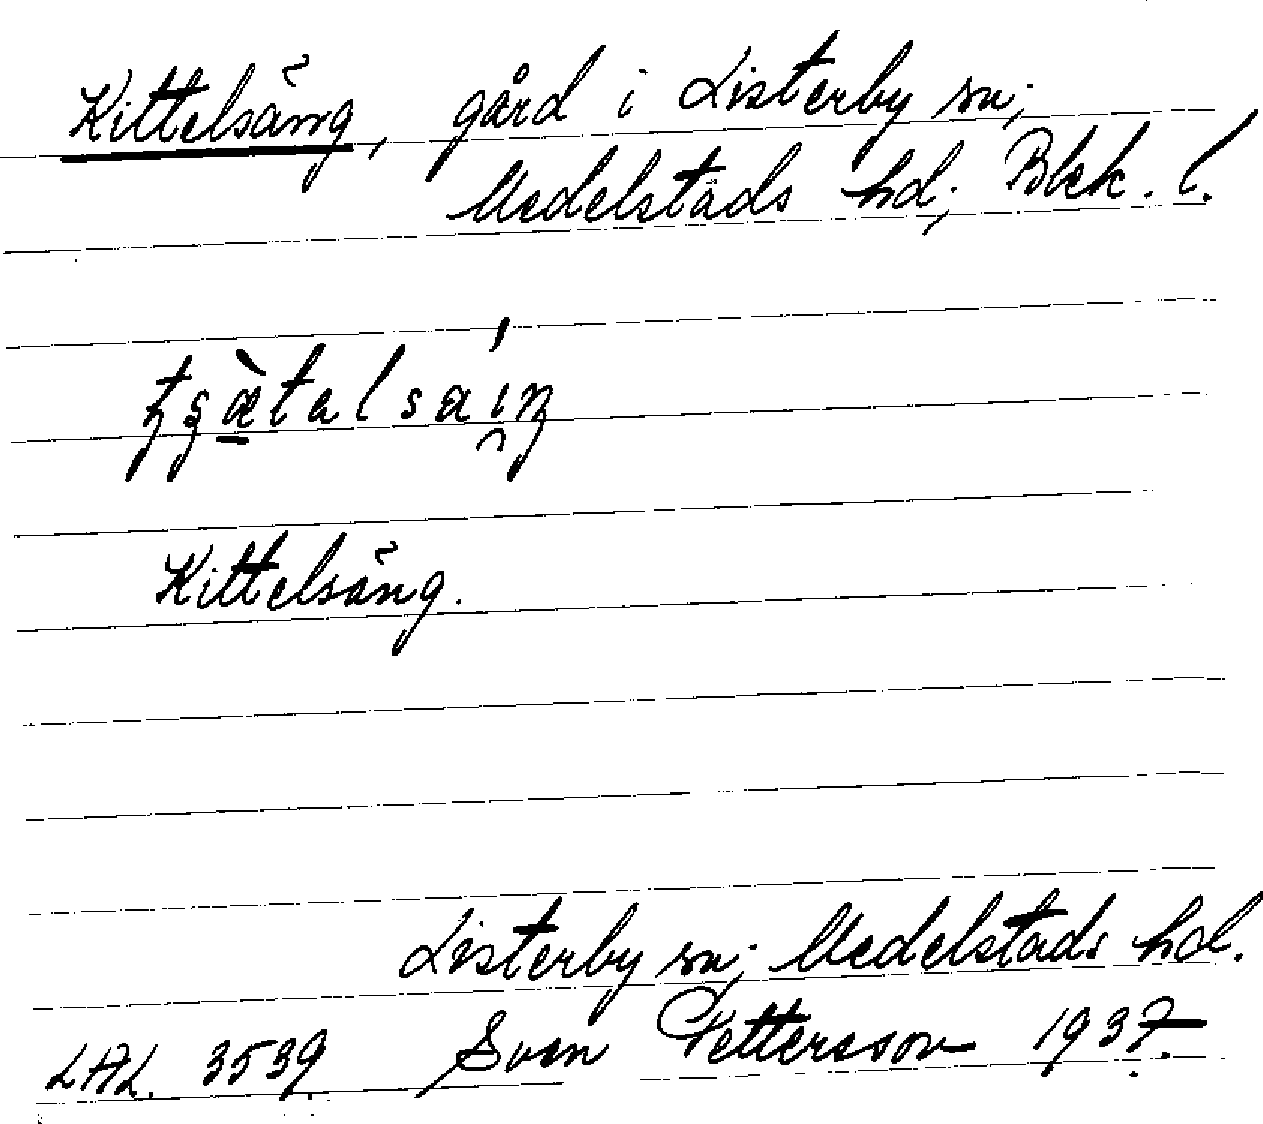 Kittelsäng, gård i Listerby sn;
Medelstads hd; Blek. l.
Kittelsäng.
Listerby sn; Medelstads hd.
LAL. 3539 Sven Pettersson 1937.